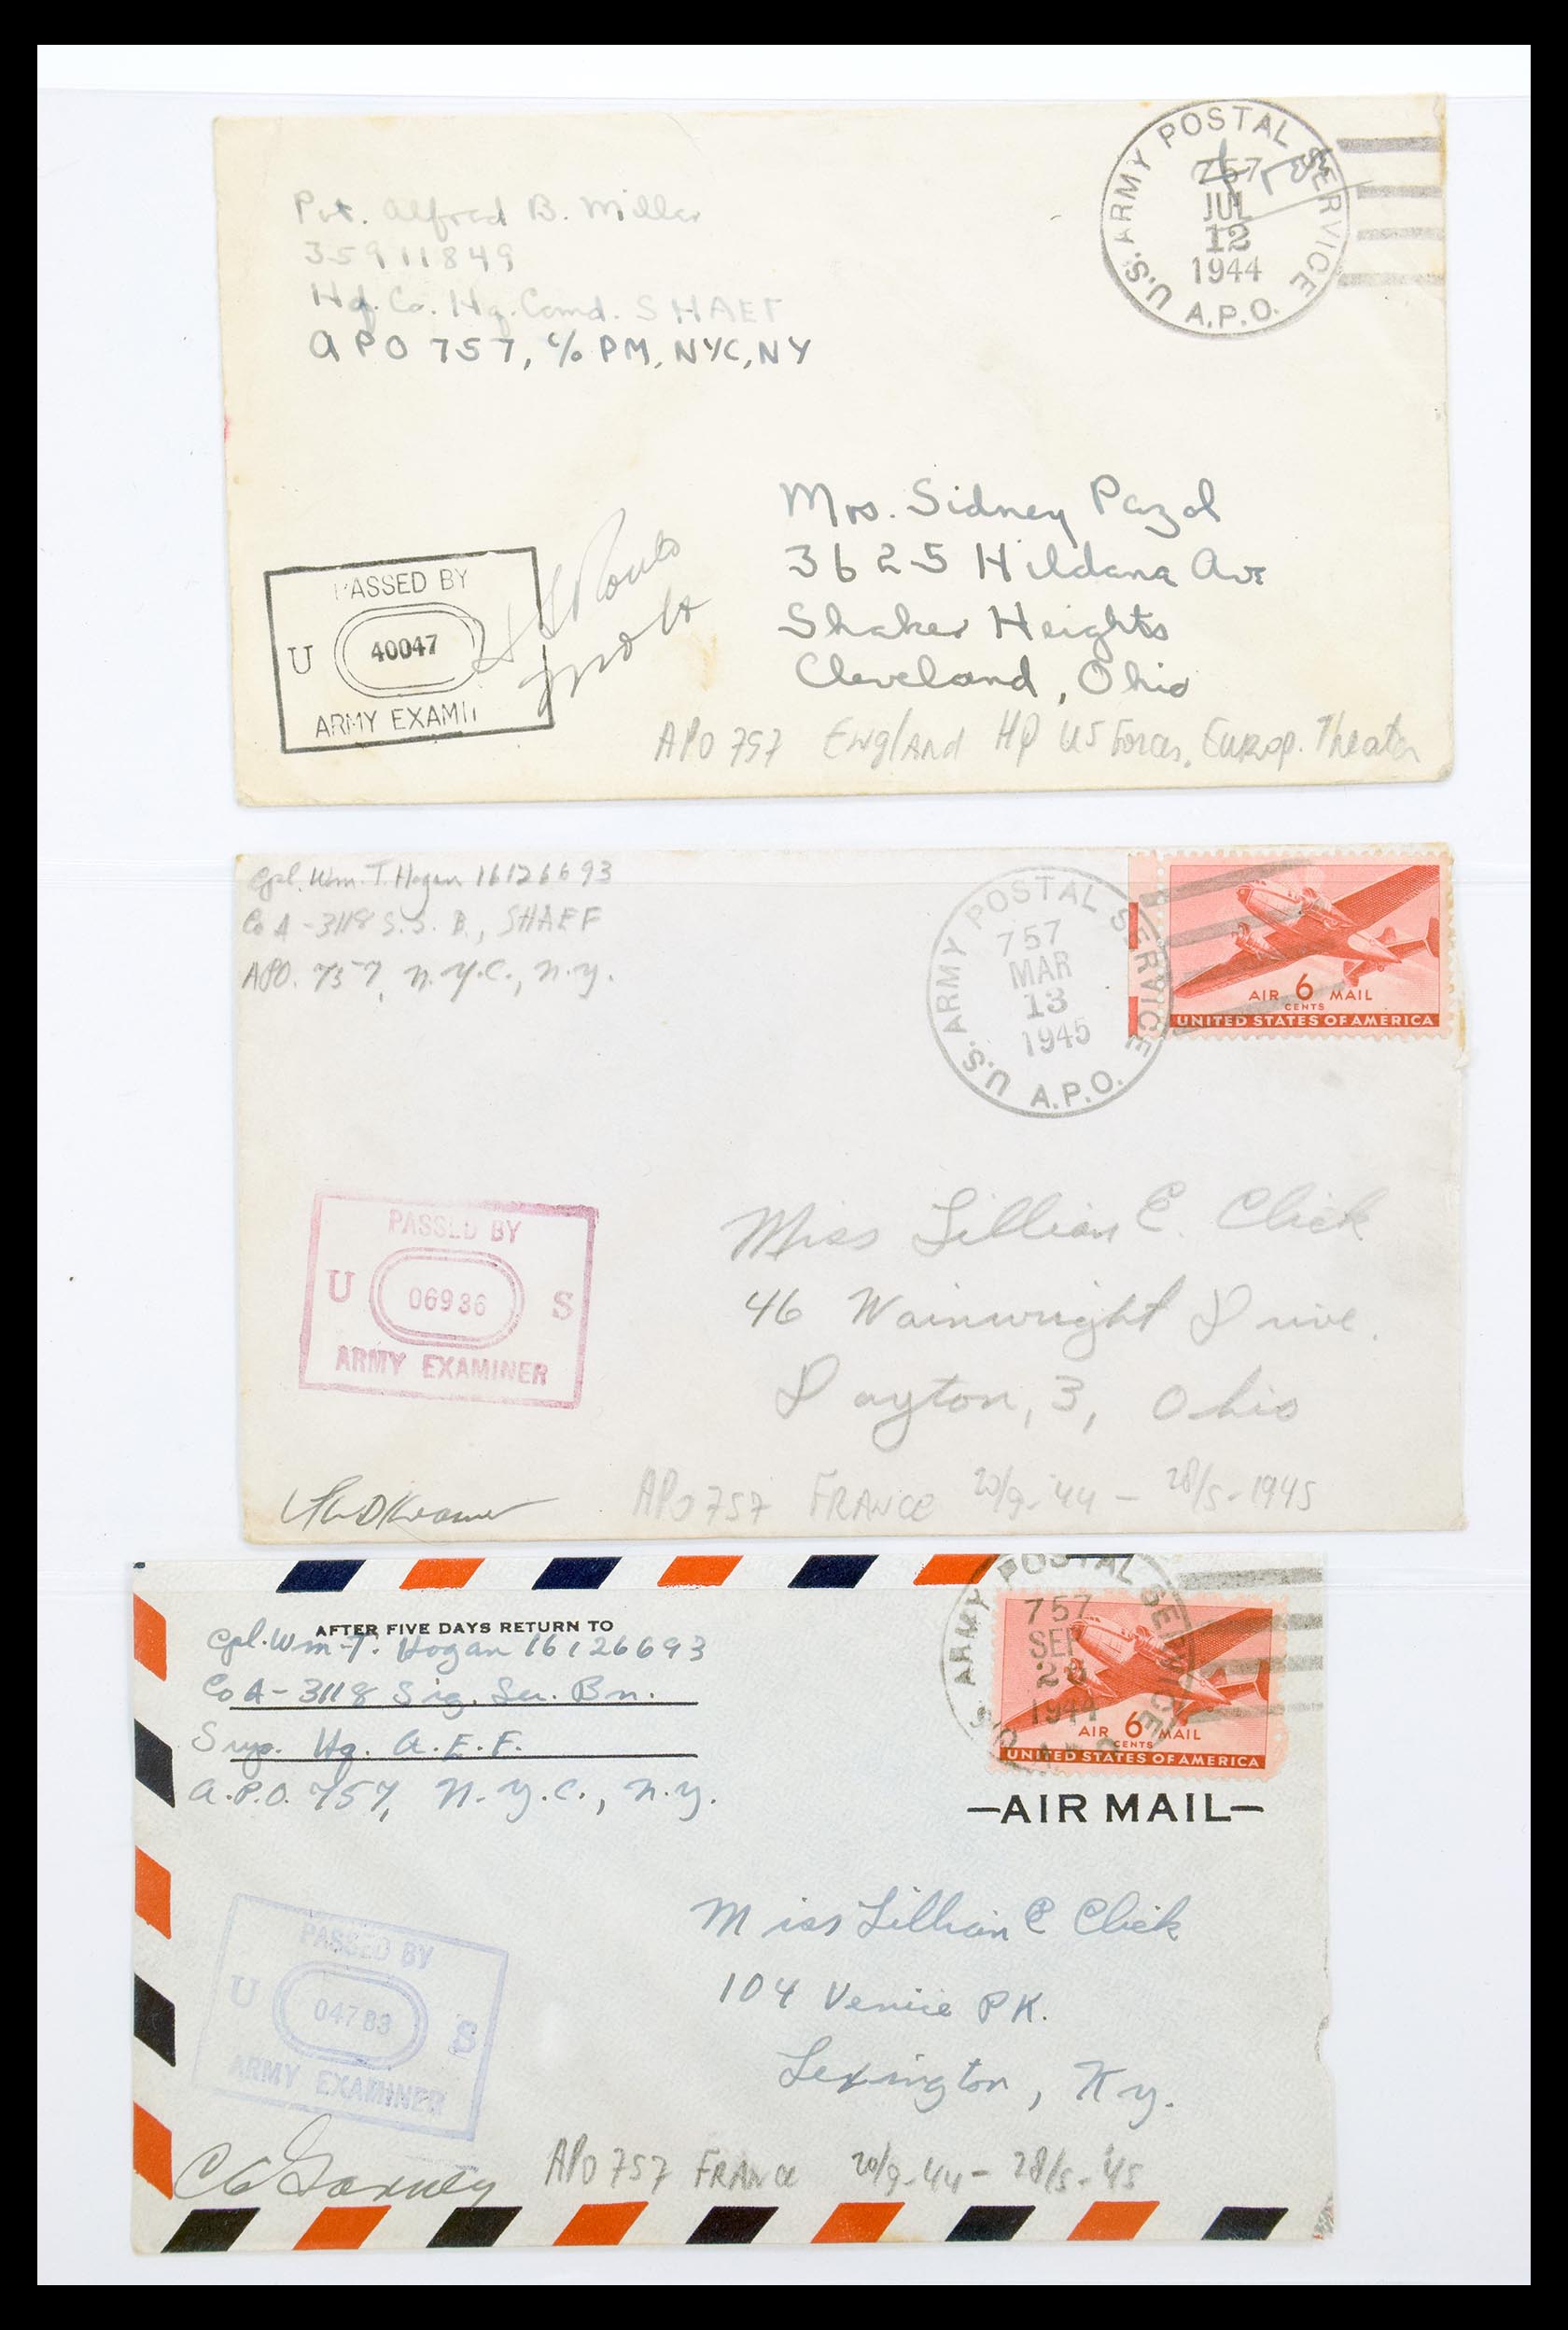 Pvt. Alfred B. Miller
35911849
Hq. Co. Hq. Comd. SHAEF
APO 757, c/o PM, NYC, NY
U.S. ARMY POSTAL SERVICE
757
JUL
12
1944
A.P.O.
Mrs. Sidney Pazol
3625 Hildana Ave
Shaker Heights
Cleveland, Ohio
PASSED BY
U 40047
ARMY EXAMI
APO 757 England HQ US Forces, Europ. Theater
Cpl. Wm. T. Hogan 16126693
Co A - 3118 S.S. B., SHAEF
APO. 757, N.Y.C., N.Y.
U.S. ARMY POSTAL SERVICE
757
MAR
13
1945
A.P.O.
AIR 6 MAIL
CENTS
UNITED STATES OF AMERICA
PASSED BY
U 06936 S
ARMY EXAMINER
Miss Lillian E. Click
46 Wainwright Drive.
Dayton, 3, Ohio
APO 757 FRANCE 20/9-'44 - 28/5-1945
AFTER FIVE DAYS RETURN TO
Cpl. Wm. T. Hogan 16126693
Co A - 3118 Sig. Ser. Bn.
Sup. Hq. A.E.F.
A.P.O. 757, N.Y.C., N.Y.
ARMY POSTAL SERVICE
757
SEP
1944
AIR 6 MAIL
CENTS
UNITED STATES OF AMERICA
—AIR MAIL—
Miss Lillian E Click
104 Venice PK.
Lexington, Ky.
PASSED BY
U 04783 S
ARMY EXAMINER
APO 757 FRANCE 20/9-44 - 28/5-'45